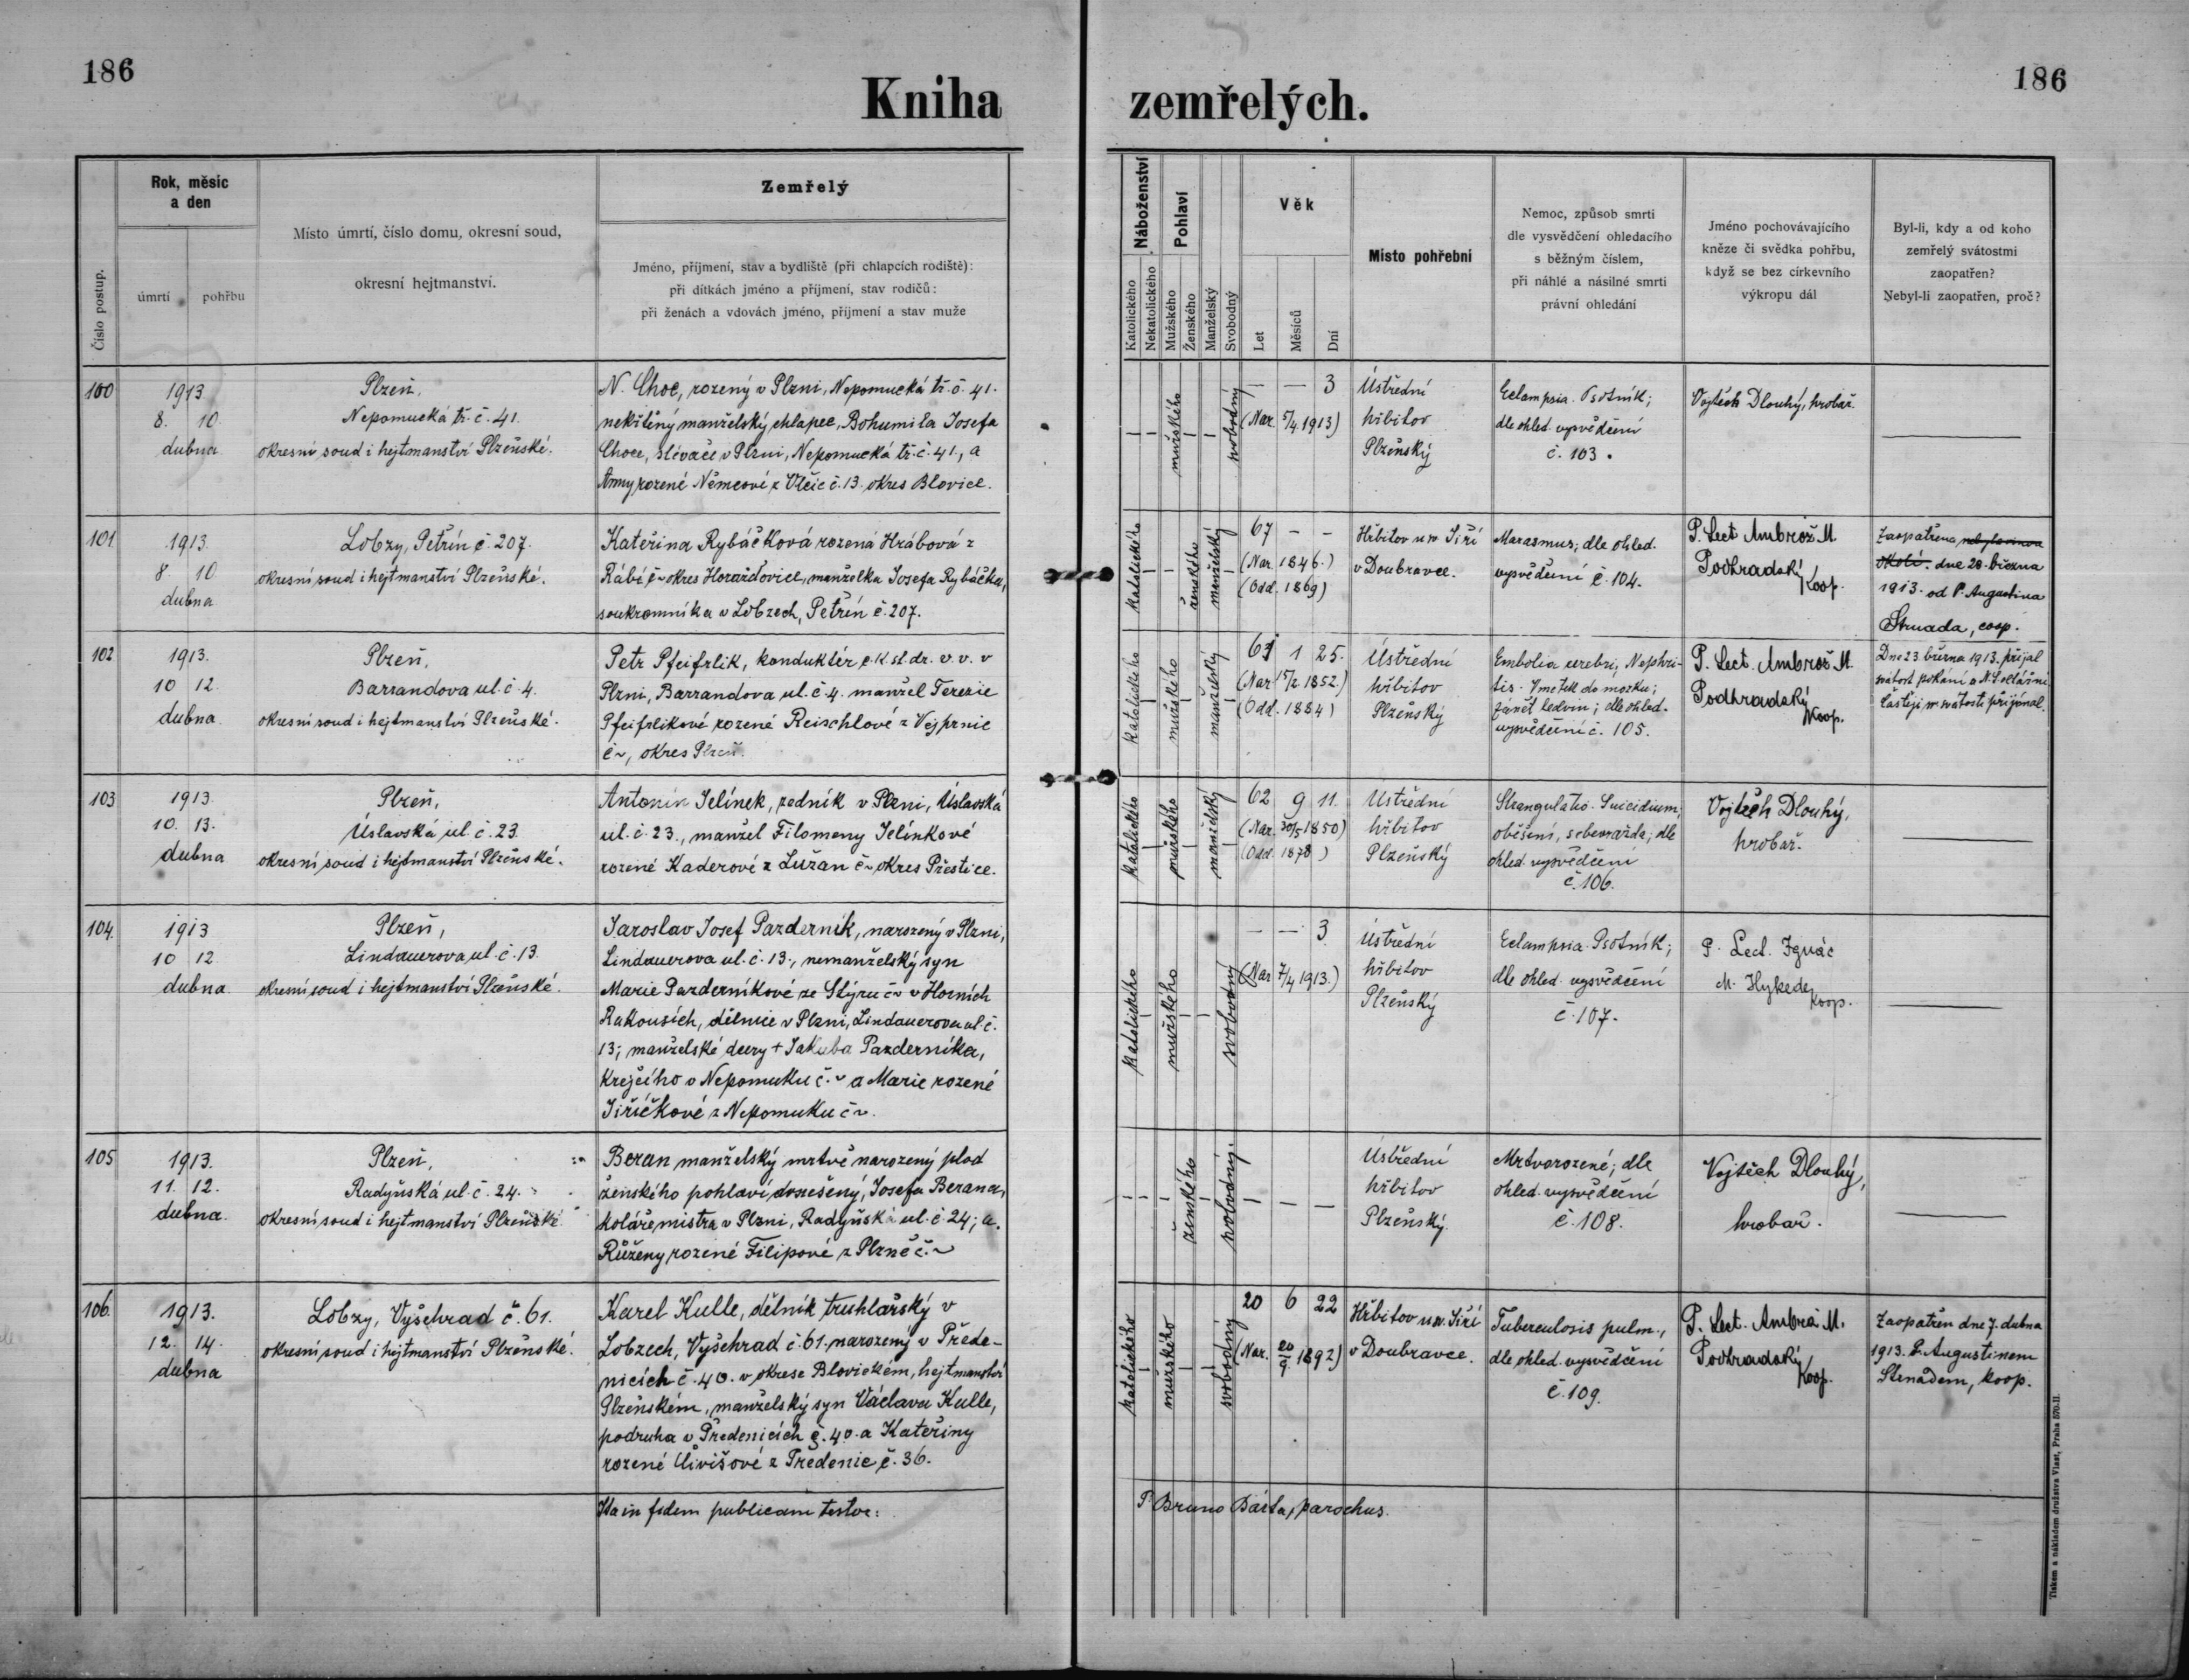 186
186
Kniha zemřelých.
Číslo postup.
Rok, měsíc
a den
úmrtí
pohřbu
Místo úmrtí, číslo domu, okresní soud,
okresní hejtmanství.
Zemřelý
Jméno, příjmení, stav a bydliště (při chlapcích rodiště):
při dítkách jméno a příjmení, stav rodičů:
při ženách a vdovách jméno, příjmení a stav muže
Náboženství
Katolického
Nekatolického
Pohlaví
Mužského
Ženského
Manželský
Svobodný
Věk
Let
Měsíců
Dní
Místo pohřební
Nemoc, způsob smrti
dle vysvědčení ohledacího
s běžným číslem,
při náhlé a násilné smrti
právní ohledání
Jméno pochovávajícího
kněze či svědka pohřbu,
když se bez církevního
výkropu dál
Byl-li, kdy a od koho
zemřelý svátostmi
zaopatřen?
Nebyl-li zaopatřen, proč?
100
1913
8. 10.
dubna
Plzeň,
Nepomucká tř. č. 41.
okresní soud i hejtmanství Plzeňské.
N. Choc, rozený v Plzni, Nepomucká tř. č. 41.
nekřtěný manželský chlapec, Bohumila Josefa
Choce, slévače v Plzni, Nepomucká tř. č. 41., a
Anny rozené Němcové z Vlčic č. 13. okres Blovice.
mužského
svobodný
— — 3
(Nar. 5/4. 1913)
Ústřední
hřbitov
Plzeňský
Eclampsia. Psotník;
dle ohled. vysvědčení
č. 103.
Vojtěch Dlouhý, hrobař.
101
1913.
8. 10.
dubna
Lobzy, Petřín č. 207.
okresní soud i hejtmanství Plzeňské.
Kateřina Rybáčková rozená Hrábová z
Rábí č~ okres Horažďovice, manželka Josefa Rybáčka,
soukromníka v Lobzech, Petřín č. 207.
katolického
ženského
manželský
67 - -
(Nar. 1846.)
(Odd. 1869)
Hřbitov u sv. Jiří
v Doubravce.
Marasmus; dle ohled.
vysvědčení č. 104.
P. Lect. Ambrož M.
Podhradský
koop.
Zaopatřena
dne 28. března
1913. od P. Augustina
Strnada, coop.
102
1913.
10 12.
dubna.
Plzeň,
Barrandova ul. č. 4.
okresní soud i hejtmanství Plzeňské.
Petr Pfeifrlik, konduktér c. k. st. dr. v. v. v
Plzni, Barrandova ul. č. 4. manžel Terezie
Pfeifrlikové rozené Reischlové z Vejprnic
č~, okres Plzeň.
katolického
mužského
manželský
61 1 25.
(Nar. 15/2. 1852.)
(Odd. 1884)
Ústřední
hřbitov
Plzeňský
Embolia cerebri, Nephri-
tis. Vmetek do mozku;
zánět ledvin; dle ohled.
vysvědčení č. 105.
P. Lect. Ambrož M.
Podhradský
koop.
Dne 23 března 1913. přijal
svátost pokání a N. S. oltářní
častěji sv. svátosti přijímal.
103
1913.
10. 13.
dubna
Plzeň,
Úslavská ul. č. 23.
okresní soud i hejtmanství Plzeňské.
Antonín Jelínek, zedník v Plzni, Úslavská
ul. č. 23., manžel Filomeny Jelínkové
rozené Kaderové z Lužan č~ okres Přestice.
katolického
mužského
manželský
62 9 11.
(Nar. 30/5 1850)
(Odd. 1878)
Ústřední
hřbitov
Plzeňský
Strangulatio. Suicidium;
oběšení, sebevražda; dle
ohled. vysvědčení
č. 106.
Vojtěch Dlouhý,
hrobař.
104.
1913
10 12
dubna
Plzeň,
Lindauerova ul. č. 13.
okresní soud i hejtmanství Plzeňské.
Jaroslav Josef Pazderník, narozený v Plzni,
Lindauerova ul. č. 13., nemanželský syn
Marie Pazderníkové ze Stýru č~ v Horních
Rakousích, dělnice v Plzni, Lindauerova ul. č.
13; manželské dcery + Jakuba Pazderníka,
krejčího v Nepomuku č.~ a Marie rozené
Jiříčkové z Nepomuku č~.
katolického
mužského
svobodný
— — 3
(Nar. 7/4 1913.)
Ústřední
hřbitov
Plzeňský
Eclampsia. Psotník;
dle ohled. vysvědčení
č. 107.
P. Lect. Ignác
M. Hykede
koop.
105
1913.
11. 12.
dubna.
Plzeň,
Radyňská ul. č. 24.
okresní soud i hejtmanství Plzeňské
Beran manželský mrtvě narozený plod
ženského pohlaví, donešený, Josefa Berana,
koláře mistra v Plzni, Radyňská ul. č. 24; a.
Růženy rozené Filipové z Plzně č.~
ženského
svobodný.
Ústřední
hřbitov
Plzeňský.
Mrtvorozené; dle
ohled. vysvědčení
č. 108.
Vojtěch Dlouhý,
hrobař.
106.
1913.
12. 14.
dubna
Lobzy, Vyšehrad č. 61.
okresní soud i hejtmanství Plzeňské.
Karel Kulle, dělník truhlářský v
Lobzech, Vyšehrad č. 61. narozený v Přede-
nicích č. 40. v okrese Blovickém, hejtmanství
Plzeňském, manželský syn Václava Kulle,
podruha v Předenicích č. 40. a Kateřiny
rozené Uivišové z Předenic č. 36.
katolického
mužského
svobodný
20 6 22
(Nar. 20/9 1892)
Hřbitov u sv. Jiří
v Doubravce.
Tuberculosis pulm.,
dle ohled. vysvědčení
č. 109.
P. Lect. Ambrož M.
Podhradský
koop.
Zaopatřen dne 7. dubna
1913. P. Augustinem
Strnadem, koop.
Ita in fidem publicam testor:
P. Bruno Bárta, parochus.
Tiskem a nákladem družstva Vlast, Praha 570-II.